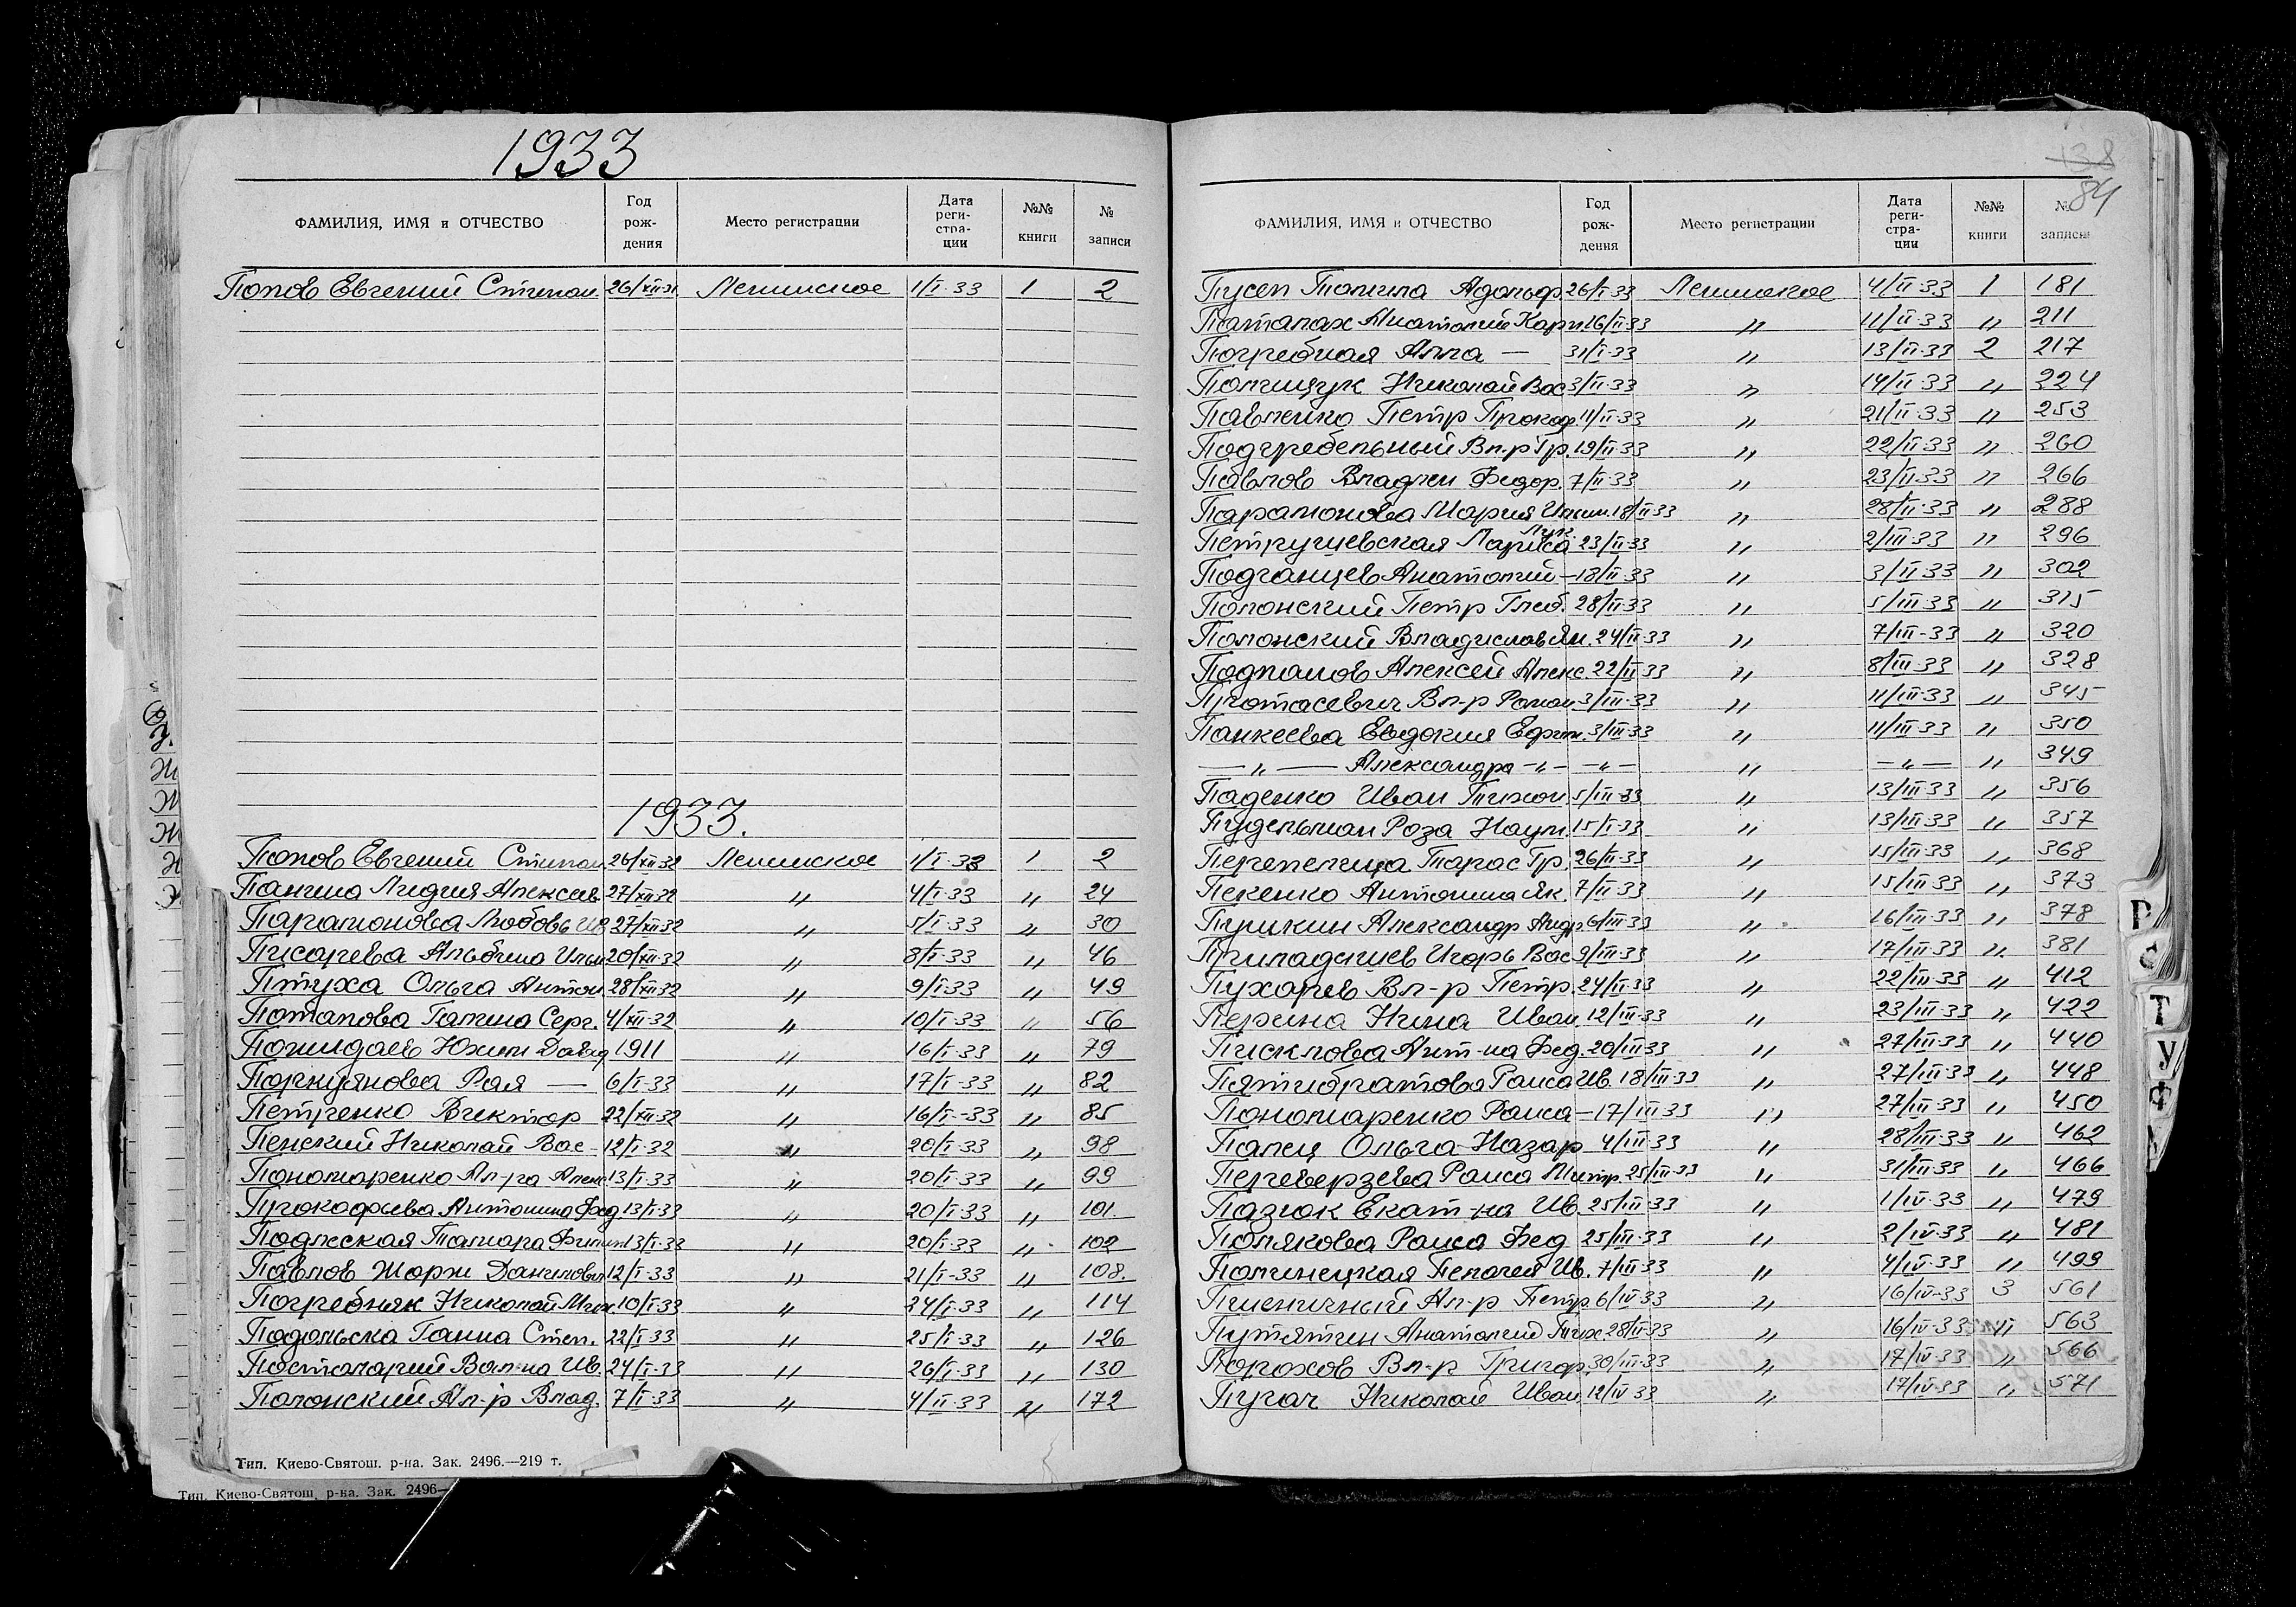 1933
ФАМИЛИЯ, ИМЯ и ОТЧЕСТВО Год рож-дения Место регистрации Дата реги-стра-ции №№ книги № записи
Попов Евгений Степан. 26/XII-31 Ленинское 1/I-33 1 2
1933.
Попов Евгений Степан 26/XII-32 Ленинское 1/I-33 1 2
Панина Лидия Алексеев 27/XII-32 " 4/I-33 " 24
Парамонова Любовь Ив 27/XII-32 " 5/I-33 " 30
Писарева Альбина Ильи 20/XII-32 " 8/I-33 " 46
Птуха Ольга Антон. 28/XII-32 " 9/I-33 " 49
Потапова Галина Серг. 4/XII-32 " 10/I-33 " 56
Пожидаев Юхим Давид 1911 " 16/I-33 " 79
Поркуянова Рая — 6/I-33 " 17/I-33 " 82
Петренко Виктор 22/XII-32 " 16/I-33 " 85
Пенский Николай Вас- 12/I-32 " 20/I-33 " 98
Пономаренко Ал-ра Алекс 13/I-33 " 20/I-33 " 99
Прокофьева Антонина Фед 13/I-33 " 20/I-33 " 101
Подлеская Тамара Филип 13/I-33 " 20/I-33 " 102
Павлов Жорж Данилович 12/I-33 " 21/I-33 " 108.
Погребняк Николай Мих. 10/I-33 " 24/I-33 " 114
Подольска Ганна Степ. 22/I-33 " 25/I-33 " 126
Постоларий Вал-на Ив. 24/I-33 " 26/I-33 " 130
Полонский Ал-р Влад. 7/I-33 " 4/II-33 " 172
Тип. Киево-Святош. р-на. Зак. 2496.—219 т.
Тип. Киево-Святош. р-на. Зак. 2496—
138
84
ФАМИЛИЯ, ИМЯ и ОТЧЕСТВО Год рож-дения Место регистрации Дата реги-стра-ции №№ книги № записи
Пусеп Адольф 26/I-33 Ленинское 4/II-33 1 181
Паталах Анатолий Карп 16/II-33 " 11/II-33 " 211
Погребная Алла — 31/I-33 " 13/II-33 2 217
Полищук Николай Вас 3/II-33 " 14/II-33 " 224
Павленко Петр Прокоф. 11/II-33 " 21/II-33 " 253
Подгребельный Вл-р Гр. 19/II-33 " 22/II-33 " 260
Павлов Владлен Федор. 7/II-33 " 23/II-33 " 266
Парамонова Мария 18/II-33 " 28/II-33 " 288
Петрушевская Лариса 23/II-33 " 2/III-33 " 296
Подганцев Анатолий — 18/II-33 " 3/II-33 " 302
Полонский Петр Глеб. 28/II-33 " 5/III-33 " 315
Полонский Владислав Ян. 24/II-33 " 7/III-33 " 320
Подпалов Алексей Алекс. 22/II-33 " 8/III-33 " 328
Протасевич Вл-р Роман 3/III-33 " 11/III-33 " 345
Панкеева Евдокия Ефим. 3/III-33 " 11/III-33 " 350
— " — Александра -"- -"- " -"- " 349
Паденко Иван Тихон 5/III-33 " 13/III-33 " 356
Пудельман Роза Наум. 15/I-33 " 13/III-33 " 357
Перепелица Тарас Гр. 26/II-33 " 15/III-33 " 368
Пекенко Антонина Як. 7/II-33 " 15/III-33 " 373
Пушкин Александр Андр. 6/III-33 " 16/III-33 " 378
Приладышев Игорь Вас 9/III-33 " 17/III-33 " 381
Пухарев Вл-р Петр. 24/II-33 " 22/III-33 " 412
Перина Нина Иван. 12/III-33 " 23/III-33 " 422
Писклова Ант-на Фед. 20/III-33 " 27/III-33 " 440
Пятибратова Раиса Ив. 18/III-33 " 27/III-33 " 448
Пономаренко Раиса — 17/III-33 " 27/III-33 " 450
Палец Ольга Назар 4/III-33 " 28/III-33 " 462
Переверзева Раиса Митр. 25/III-33 " 31/III-33 " 466
Пазюк Екат-на Ив. 25/III-33 " 1/IV-33 " 479
Полякова Раиса Фед 25/III-33 " 2/IV-33 " 481
Полинецкая Пелагея Ив. 7/III-33 " 4/IV-33 " 499
Пшеничный Ал-р Петр. 6/IV-33 " 16/IV-33 3 561
Путятин Анатолий Тих 28/II-33 " 16/IV-33 " 563
Порохов Вл-р Григор. 30/III-33 " 17/IV-33 " 566
Пугач Николай Иван. 12/IV-33 " 17/IV-33 " 571
Р
С
Т
У
Ф